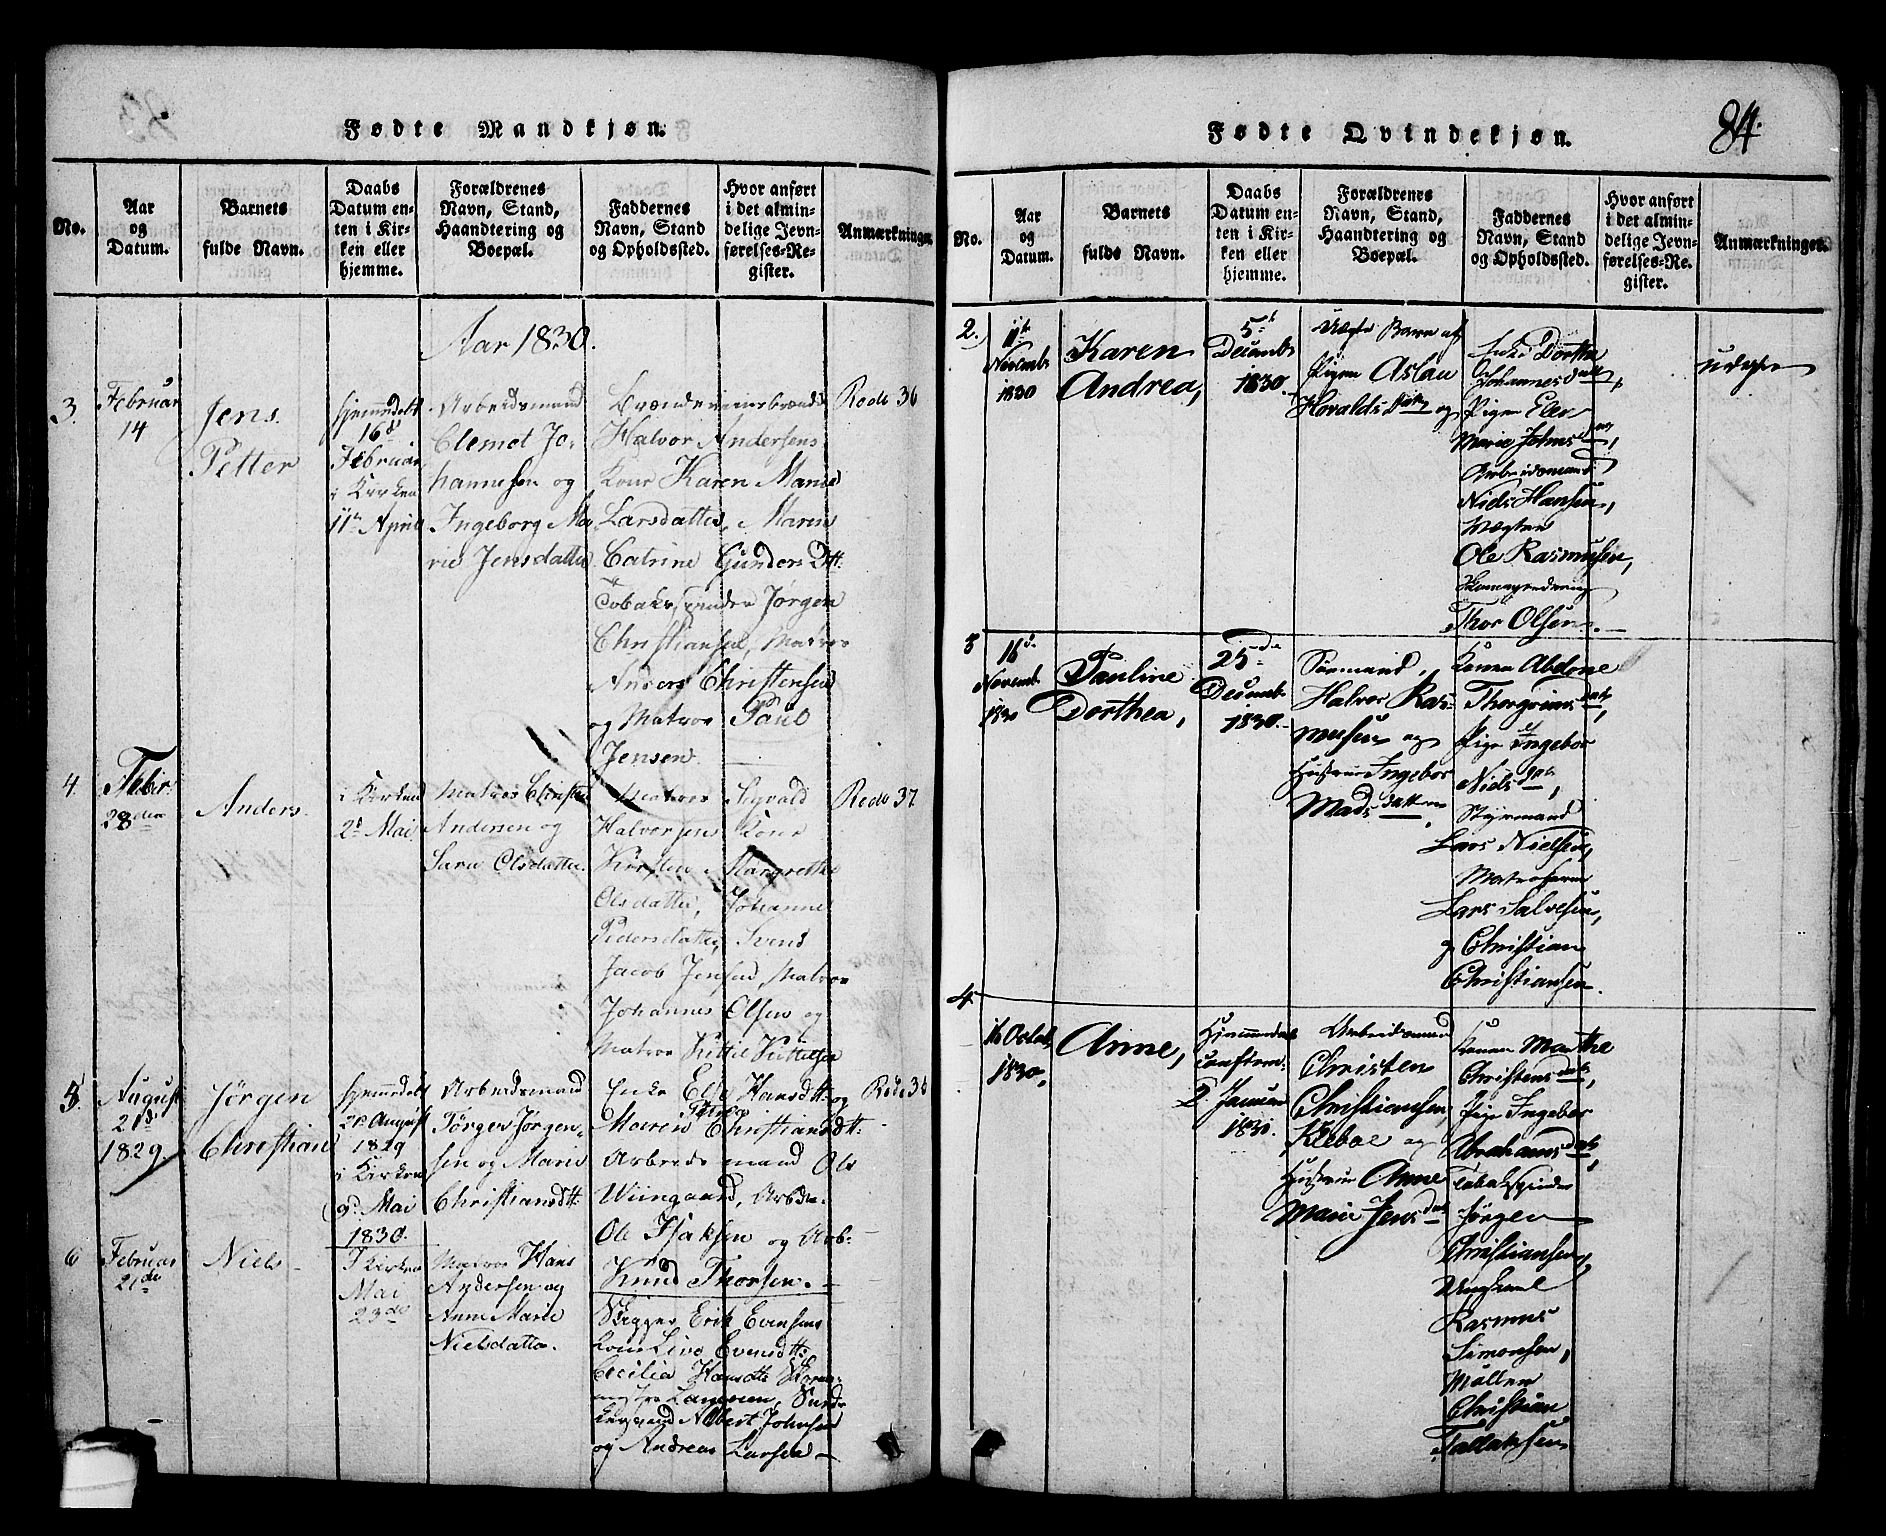 Fødte Mandkjøn.
No.
Aar
og
Datum.
Barnets
fulde Navn.
Daabs
Datum en-
ten i Kir-
ken eller
hjemme.
Forældrenes
Navn, Stand,
Haandtering og
Boepæl.
Faddernes
Navn, Stand
og Opholdssted.
Hvor anført
i det almin-
delige Jevn-
førelses-Re-
gister.
Anmærkninger.
Aar 1830.
3.
Februar
14
Jens
Petter
hjemmedøbt
16d
Februar
i Kirken
11te April
Arbeidsmand
Clemet Jo-
hannesen og
Ingeborg Ma-
rie Jensdatter
Halvor Andersens
Kone Karen Marie
Larsdatter, Maren
Catrine Gunders Dtt:
Tobakspinder Jørgen
Christiansen, Matros
Anders Christensen
og Matros Paul
Jensen
Rode 36
4.
Febr:
28den
Anders.
i Kirken
2d Mai
Matros Christen
Andersen og
Sara Olsdatter.
Matros Sigvald
Halvorsen Kone
Kirsten Margrethe
Olsdatter, Johanne
Pedersdatter, Svend
Jacob Jensen, Matros
Johannes Olsen og
Matros Kittil Kittilsen
Rode 37
5.
August
21d
1829
Jørgen
Christian
hjemmedøbt
August
1829
i Kirken
9d Mai
1830.
Arbeidsmand
Jørgen Jørgen-
sen og Maria
Christiansdtt:
Enke Else Hansdtt: og
Maren Christiansdtt:
Arbeidsmand Ole
Wiingaard, Arbdm.
Ole Isaksen og Arb:
Knud Thorsen.
Rode 38
6
Februar
21de
Niels
I Kirken
Mai
23de
Matros Hans
Andersen og
Anne Marie
Nielsdatter.
Skipper Erik Evensens
Kone Live Evensdtt:
Cecilia Hansdtt
Albert Johnsen
og Andreas Larsen
Fødte Qvindekjøn.
84.
No.
Aar
og
Datum.
Barnets
fulde Navn.
Daabs
Datum en-
ten i Kir-
ken eller
hjemme.
Forældrenes
Navn, Stand,
Haandtering og
Boepæl.
Faddernes
Navn, Stand
og Opholdssted.
Hvor anført
i det almin-
delige Jevn-
førelses-Re-
gister.
Anmærkninger.
2.
11te
Novembr
1830
Karen
Andrea,
5te
Decembr
1830.
Uægte Barn af
Pigen Aslau
Horalds datr og
Enke Dorthe
Johannesdatr,
Pigen Elen
Marie Johnsdatr,
Arbeidsmand
Niels Hansen,
Vægter
Ole Rasmusen,
Thor Olsen.
uægte
3
16de
Novembr
1830
Pauline
Dorthea,
25de
Decembr
1830.
Sømand
Halvor Ras-
musen og
Hustrue Ingebor
Mads datter.
Konen Abelone
Thorgrimsdatr,
Pige Ingebor
Nielsdatr,
Styrmand
Lars Nielsen,
Matroserne
Lars Salvesen,
og Christian
Christiansen.
4.
16 Octob,
1830,
Anne,
Hjemmedøbt
confirm:
2 Januar
1831.
Arbeidsmand
Christen
Christiansen
Kleboe og
Hustrue Anne
Marie Jensdatr
Konen Marthe
Christensdatr,
Pige Ingebor
Abrahamsdatr,
Tobakspinder
Jørgen
Christiansen,
Ungkarl
Rasmus
Simonsen,
Møller
Christian
Tallaksen